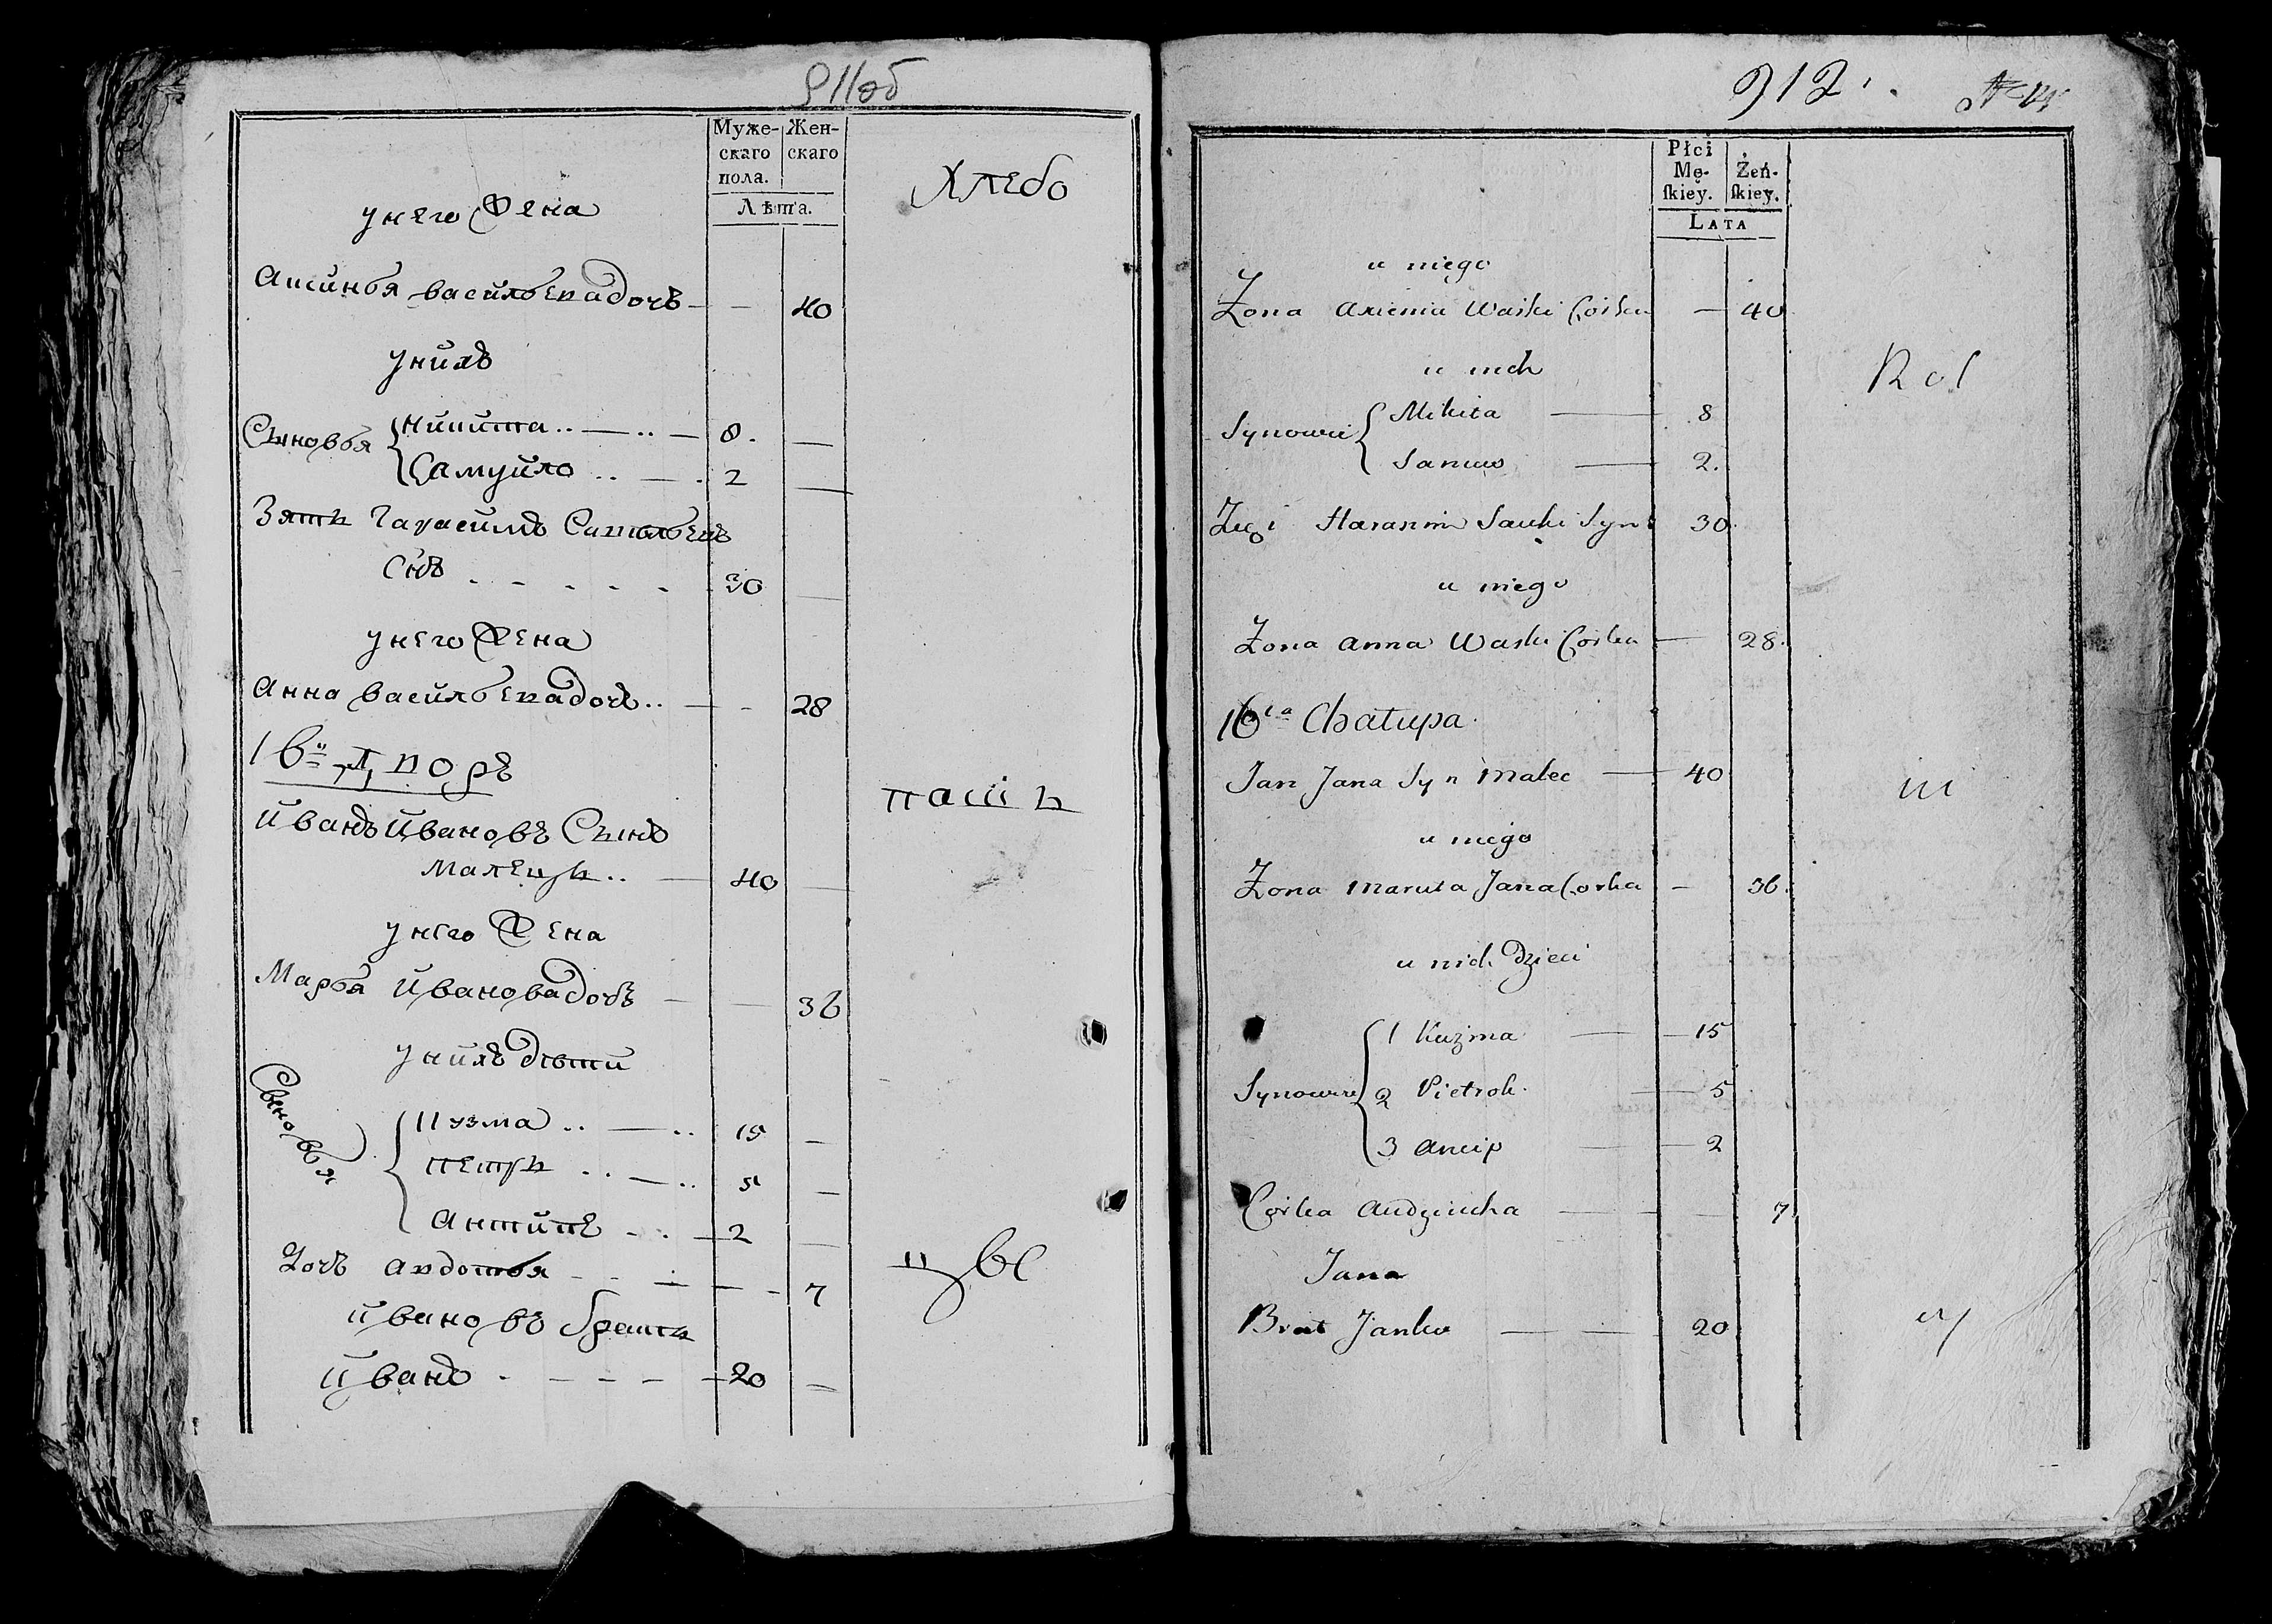 911об
Муже-
скаго
пола.
Жен-
скаго
Лѣта.
Хлебо
у него Жена
Аксинья васильева дочь 40
у нихъ
Сыновья
никита 8.
Самуйло 2
Зять Гарасимъ Савельевъ
Снъ 30
у него Жена
Анна васильева дочь 28
16й двор
паш
йванъ йвановъ Сынъ
Малецъ 40
у него Жена
Марья йванова дочь 36
у нихъ дѣти
Сыновья
Кузма 15
петръ 5
Антипъ 2
Дочь Авдотья 7
йвановъ братъ
йванъ 20
912.
Płci
Mę-
skiey.
Żeń-
skiey.
LATA
u niego
Żona Axienia Waśki Corka 40
u nich
Rol
Synowie
Mikita 8
2.
Zięć Harasim Sauki Syn 30
u niego
Żona Anna Waśki Corka 28.
16ta Chałupa.
Jan Jana Syn Malec 40
u niego
Żona Maruta Jana Corka 36.
u nich Dzieci
Synowie
1 Kuzma 15
2 Pietrok. 5
3 Ancip 2
Corka Audziucha 7
Jana
Brat Janko 20